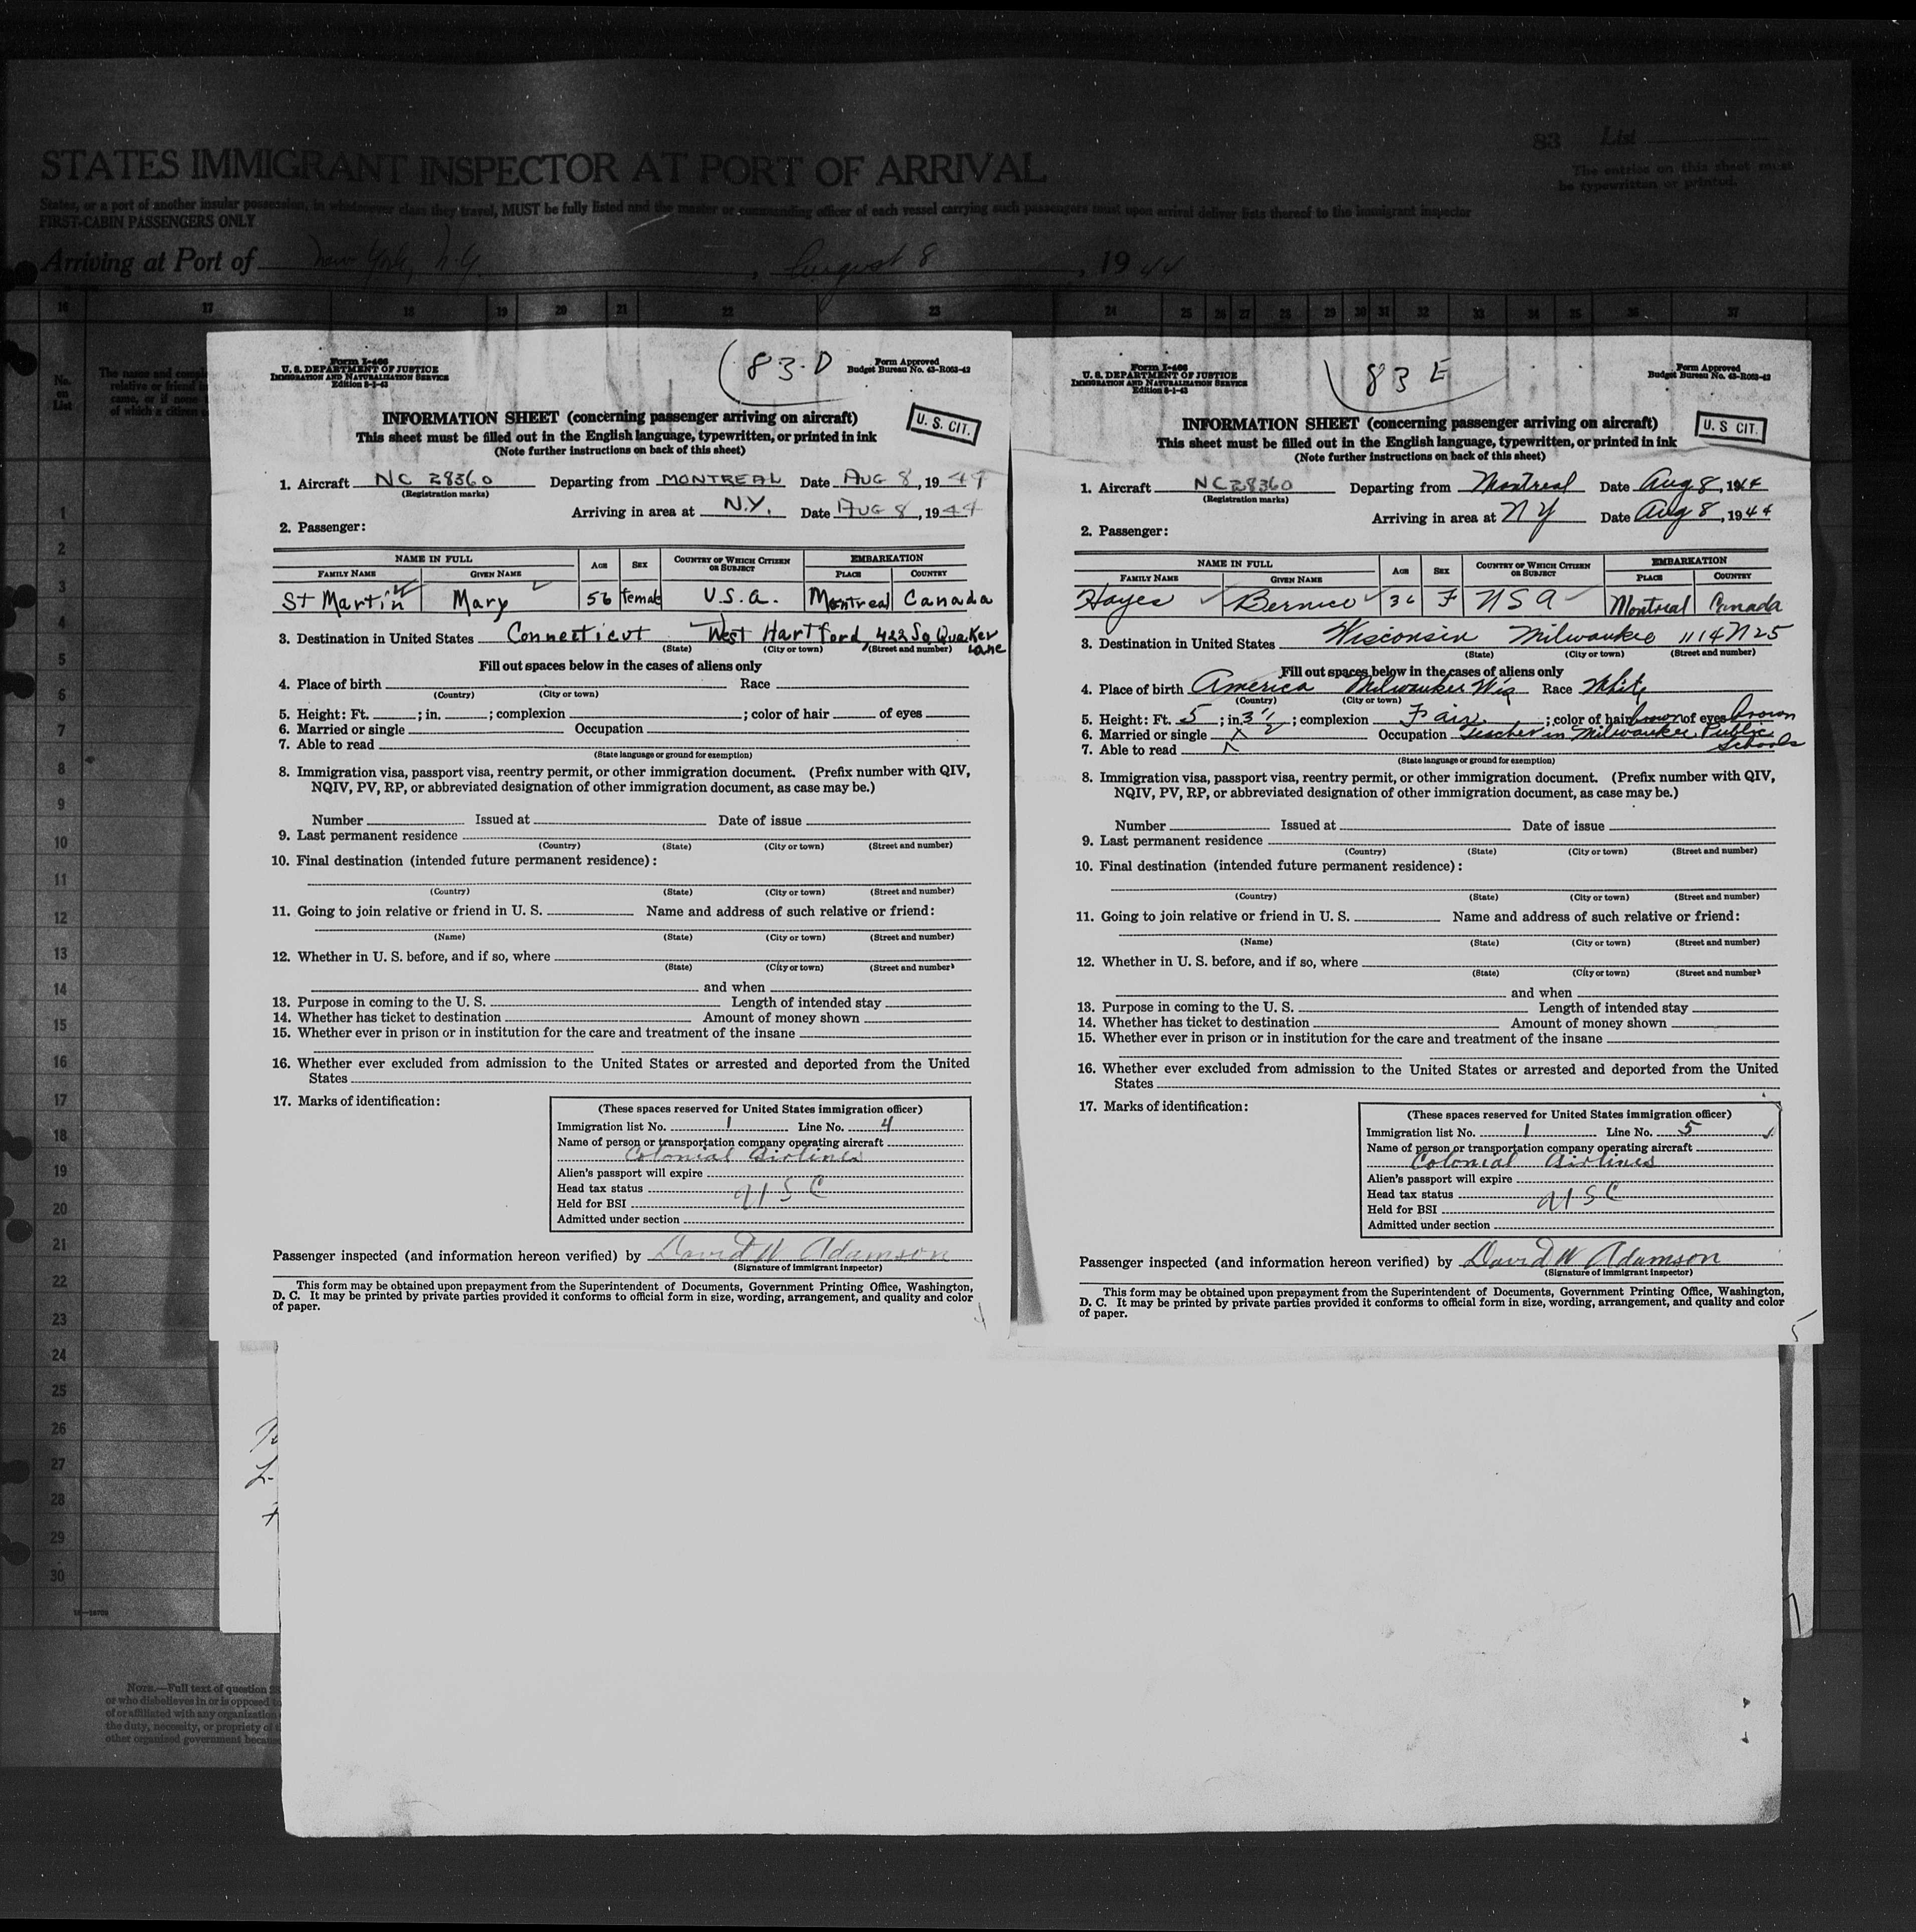 83 List
STATES IMMIGRANT INSPECTOR AT PORT OF ARRIVAL
The entries on this sheet must
be typewritten or printed.
States, or a port of another insular possession, in whatsoever class they travel, MUST be fully listed and the master or commanding officer of each vessel carrying such passengers must upon arrival deliver lists thereof to the immigrant inspector
FIRST-CABIN PASSENGERS ONLY
Arriving at Port of New York, N.Y., August 8, 1944
16 17 18 19 20 21 22 23 24 25 26 27 28 29 30 31 32 33 34 35 36 37
No. on List
The name and comple
relative or friend in
came, or if none
of which a citizen o
1
2
3
4
5
6
7
8
9
10
11
12
13
14
15
16
17
18
19
20
21
22
23
24
25
26
27
28
29
30
Note.—Full text of question
or who disbelieves in or is opposed to
of or affiliated with any organization
the duty, necessity, or propriety of
other organized government because
Form I-466
U. S. DEPARTMENT OF JUSTICE
Immigration and Naturalization Service
Edition 8-1-43
83-D
Form Approved
Budget Bureau No. 43-R063-42
INFORMATION SHEET (concerning passenger arriving on aircraft)
U. S. CIT.
This sheet must be filled out in the English language, typewritten, or printed in ink
(Note further instructions on back of this sheet)
1. Aircraft NC 28360 Departing from MONTREAL Date AUG 8, 1944
(Registration marks)
Arriving in area at N.Y. Date AUG 8, 1944
2. Passenger:
NAME IN FULL Age Sex Country of Which Citizen or Subject EMBARKATION
Family Name Given Name Place Country
St Martin Mary 56 female U.S.A. Montreal Canada
3. Destination in United States Connecticut West Hartford, 422 So Quaker Lane
(State) (City or town) (Street and number)
Fill out spaces below in the cases of aliens only
4. Place of birth Race
(Country) (City or town)
5. Height: Ft. ; in. ; complexion ; color of hair of eyes
6. Married or single Occupation
7. Able to read
(State language or ground for exemption)
8. Immigration visa, passport visa, reentry permit, or other immigration document. (Prefix number with QIV,
NQIV, PV, RP, or abbreviated designation of other immigration document, as case may be.)
Number Issued at Date of issue
9. Last permanent residence
(Country) (State) (City or town) (Street and number)
10. Final destination (intended future permanent residence):
(Country) (State) (City or town) (Street and number)
11. Going to join relative or friend in U. S. Name and address of such relative or friend:
(Name) (State) (City or town) (Street and number)
12. Whether in U. S. before, and if so, where
(State) (City or town) (Street and number)
and when
13. Purpose in coming to the U. S. Length of intended stay
14. Whether has ticket to destination Amount of money shown
15. Whether ever in prison or in institution for the care and treatment of the insane
16. Whether ever excluded from admission to the United States or arrested and deported from the United
States
17. Marks of identification:
(These spaces reserved for United States immigration officer)
Immigration list No. 1 Line No. 4
Name of person or transportation company operating aircraft
Colonial Airlines
Alien's passport will expire
Head tax status USC
Held for BSI
Admitted under section
Passenger inspected (and information hereon verified) by David W Adamson
(Signature of immigrant inspector)
This form may be obtained upon prepayment from the Superintendent of Documents, Government Printing Office, Washington,
D. C. It may be printed by private parties provided it conforms to official form in size, wording, arrangement, and quality and color
of paper.
4
Form I-466
U. S. DEPARTMENT OF JUSTICE
Immigration and Naturalization Service
Edition 8-1-43
83 E
Form Approved
Budget Bureau No. 43-R063-42
INFORMATION SHEET (concerning passenger arriving on aircraft)
U. S CIT.
This sheet must be filled out in the English language, typewritten, or printed in ink
(Note further instructions on back of this sheet)
1. Aircraft NC28360 Departing from Montreal Date Aug 8, 1944
(Registration marks)
Arriving in area at N Y Date Aug 8, 1944
2. Passenger:
NAME IN FULL Age Sex Country of Which Citizen or Subject EMBARKATION
Family Name Given Name Place Country
Hayes Bernice 36 F USA Montreal Canada
3. Destination in United States Wisconsin Milwaukee 1114 N 25
(State) (City or town) (Street and number)
Fill out spaces below in the cases of aliens only
4. Place of birth America Milwaukee Wis Race White
(Country) (City or town)
5. Height: Ft. 5; in. 3 1/2; complexion Fair; color of hair brown of eyes brown
6. Married or single X Occupation Teacher in Milwaukee Public Schools
7. Able to read
(State language or ground for exemption)
8. Immigration visa, passport visa, reentry permit, or other immigration document. (Prefix number with QIV,
NQIV, PV, RP, or abbreviated designation of other immigration document, as case may be.)
Number Issued at Date of issue
9. Last permanent residence
(Country) (State) (City or town) (Street and number)
10. Final destination (intended future permanent residence):
(Country) (State) (City or town) (Street and number)
11. Going to join relative or friend in U. S. Name and address of such relative or friend:
(Name) (State) (City or town) (Street and number)
12. Whether in U. S. before, and if so, where
(State) (City or town) (Street and number)
and when
13. Purpose in coming to the U. S. Length of intended stay
14. Whether has ticket to destination Amount of money shown
15. Whether ever in prison or in institution for the care and treatment of the insane
16. Whether ever excluded from admission to the United States or arrested and deported from the United
States
17. Marks of identification:
(These spaces reserved for United States immigration officer)
Immigration list No. 1 Line No. 5
Name of person or transportation company operating aircraft
Colonial Airlines
Alien's passport will expire
Head tax status USC
Held for BSI
Admitted under section
Passenger inspected (and information hereon verified) by David W Adamson
(Signature of immigrant inspector)
This form may be obtained upon prepayment from the Superintendent of Documents, Government Printing Office, Washington,
D. C. It may be printed by private parties provided it conforms to official form in size, wording, arrangement, and quality and color
of paper.
5